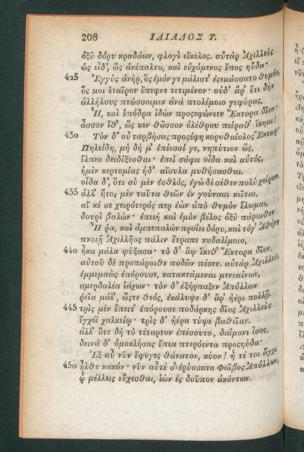 208 ΙΛΙΑΔΟΣ Υ.
ὀξὺ δόρυ κραδάων, φλογὶ εἴκελος. αὐτὰρ Ἀχιλλεὺς
ὡς εἶδ', ὣς ἀνέπαλτο, καὶ εὐχόμενος ἔπος ηὔδα·
425 Ἐγγὺς ἀνὴρ, ὃς ἐμόν γε μάλιστ' ἐσεμάσσατο θυμόν,
ὅς μοι ἑταῖρον ἔπεφνε τετιμένον· οὐδ' ἂρ' ἔτι δὴν
ἀλλήλους πτώσσοιμεν ἀνὰ πτολέμοιο γεφύρας.
Ἦ, καὶ ὑπόδρα ἰδὼν προσεφώνεεν Ἕκτορα δῖον·
ἆσσον ἴθ', ὥς κεν θᾶσσον ὀλέθρου πείραθ' ἵκηαι!
430 Τὸν δ' οὐ ταρβήσας προσέφη κορυθαίολος Ἕκτωρ·
Πηλείδη, μὴ δή μ' ἐπέεσσί γε, νηπύτιον ὥς,
ἔλπεο δειδίξεσθαι· ἐπεὶ σάφα οἶδα καὶ αὐτός,
ἠμὲν κερτομίας ἠδ' αἴσυλα μυθήσασθαι.
οἶδα δ', ὅτι σὺ μὲν ἐσθλός, ἐγὼ δὲ σέθεν πολὺ χείρων·
435 ἀλλ' ἤτοι μὲν ταῦτα θεῶν ἐν γούνασι κεῖται,
αἴ κέ σε χειρότερός περ ἐὼν ἀπὸ θυμὸν ἕλωμαι,
δουρὶ βαλών· ἐπειὴ καὶ ἐμὸν βέλος ὀξὺ πάροιθεν
Ἦ ῥα, καὶ ἀμπεπαλὼν προΐει δόρυ, καὶ τόγ' Ἀθήνη
πνοιῇ Ἀχιλλῆος πάλιν ἔτραπε κυδαλίμοιο,
440 ἦκα μάλα ψύξασα· τὸ δ' ἂψ ἵκεθ' Ἕκτορα δῖον,
αὐτοῦ δὲ προπάροιθε ποδῶν πέσεν. αὐτὰρ Ἀχιλλεὺς
ἐμμεμαὼς ἐπόρουσε, κατακτάμεναι μενεαίνων,
σμερδαλέα ἰάχων· τὸν δ' ἐξήρπαξεν Ἀπόλλων
ῥεῖα μάλ', ὥστε θεός, ἐκάλυψε δ' ἄρ' ἠέρι πολλῇ.
445 τρὶς μὲν ἔπειτ' ἐπόρουσε ποδάρκης δῖος Ἀχιλλεὺς
ἔγχεϊ χαλκείῳ· τρὶς δ' ἠέρα τύψε βαθεῖαν.
ἀλλ' ὅτε δὴ τὸ τέταρτον ἐπέσσυτο, δαίμονι ἶσος,
δεινὰ δ' ὁμοκλήσας ἔπεα πτερόεντα προσηύδα·
Ἐξ αὖ νῦν ἔφυγες θάνατον, κύον! ἦ τέ τοι ἄγχι
450 ἦλθε κακόν· νῦν αὖτέ σ' ἐρύσσατο Φοῖβος Ἀπόλλων,
ᾧ μέλλεις εὔχεσθαι, ἰὼν ἐς δοῦπον ἀκόντων.